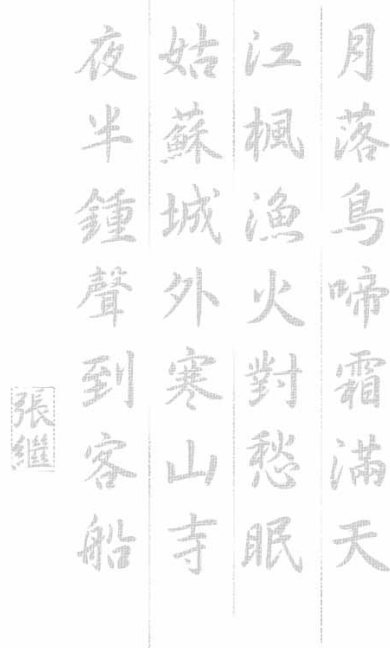 月落烏啼霜滿天
江楓漁火對愁眠
姑蘇城外寒山寺
夜半鍾聲到客船
張繼